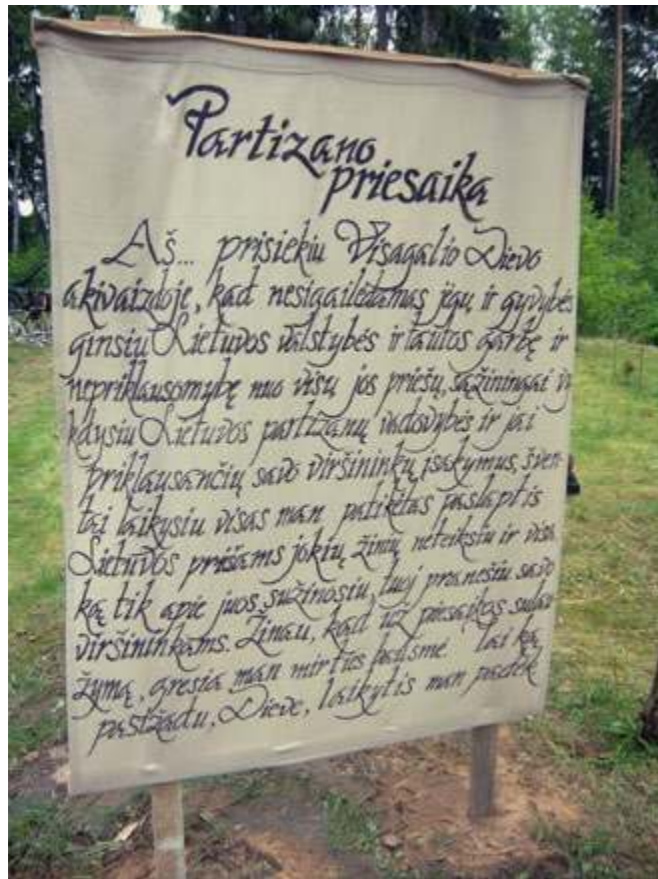 Partizano
priesaika
Aš... prisiekiu Visagalio Dievo
akivaizdoje, kad nesigailėdamas jėgų ir gyvybės
ginsiu Lietuvos valstybės ir tautos garbę ir
nepriklausomybę nuo visų jos priešų, sąžiningai vy
kdysiu Lietuvos partizanų vadovybės ir jai
priklausančių savo viršininkų įsakymus, šven-
tai laikysiu visas man patikėtas paslaptis
Lietuvos priešams jokių žinių neteiksiu ir visa
ką tik apie juos sužinosiu, tuoj pranešiu savo
viršininkams. Žinau, kad už priesaikos sulau
žymą, gresia man mirties bausmė tai ką
pasižadu, Dieve, laikytis man padėk